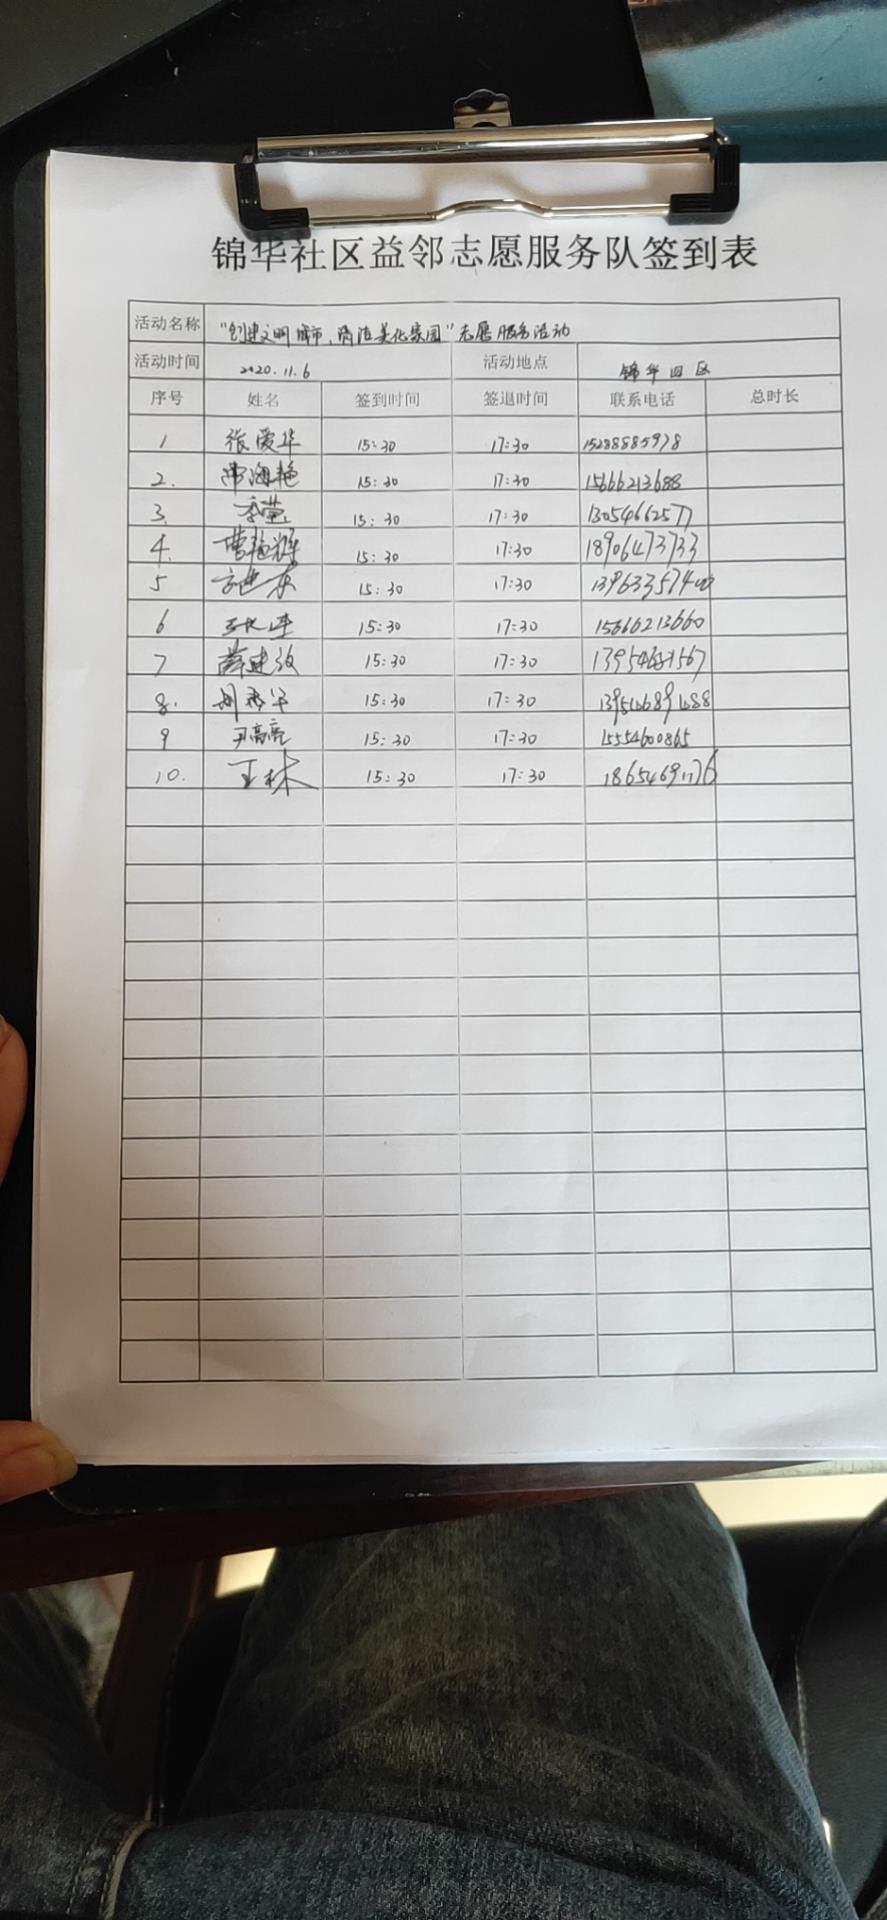 锦华社区益邻志愿服务队签到表
活动名称 "创建文明城市、清洁美化家园"志愿服务活动
活动时间 2020.11.6 活动地点 锦华四区
序号 姓名 签到时间 签退时间 联系电话 总时长
1 张爱华 15:30 17:30 15288885978
2. 海艳 15:30 17:30 15666213688
3. 李莹 15:30 17:30 13054662577
4. 曹艳辉 15:30 17:30 18906473733
5 15:30 17:30
6 15:30 17:30 15666213660
7 薛建波 15:30 17:30
8. 15:30 17:30
9 尹高亮 15:30 17:30 15554600865
10. 王林 15:30 17:30